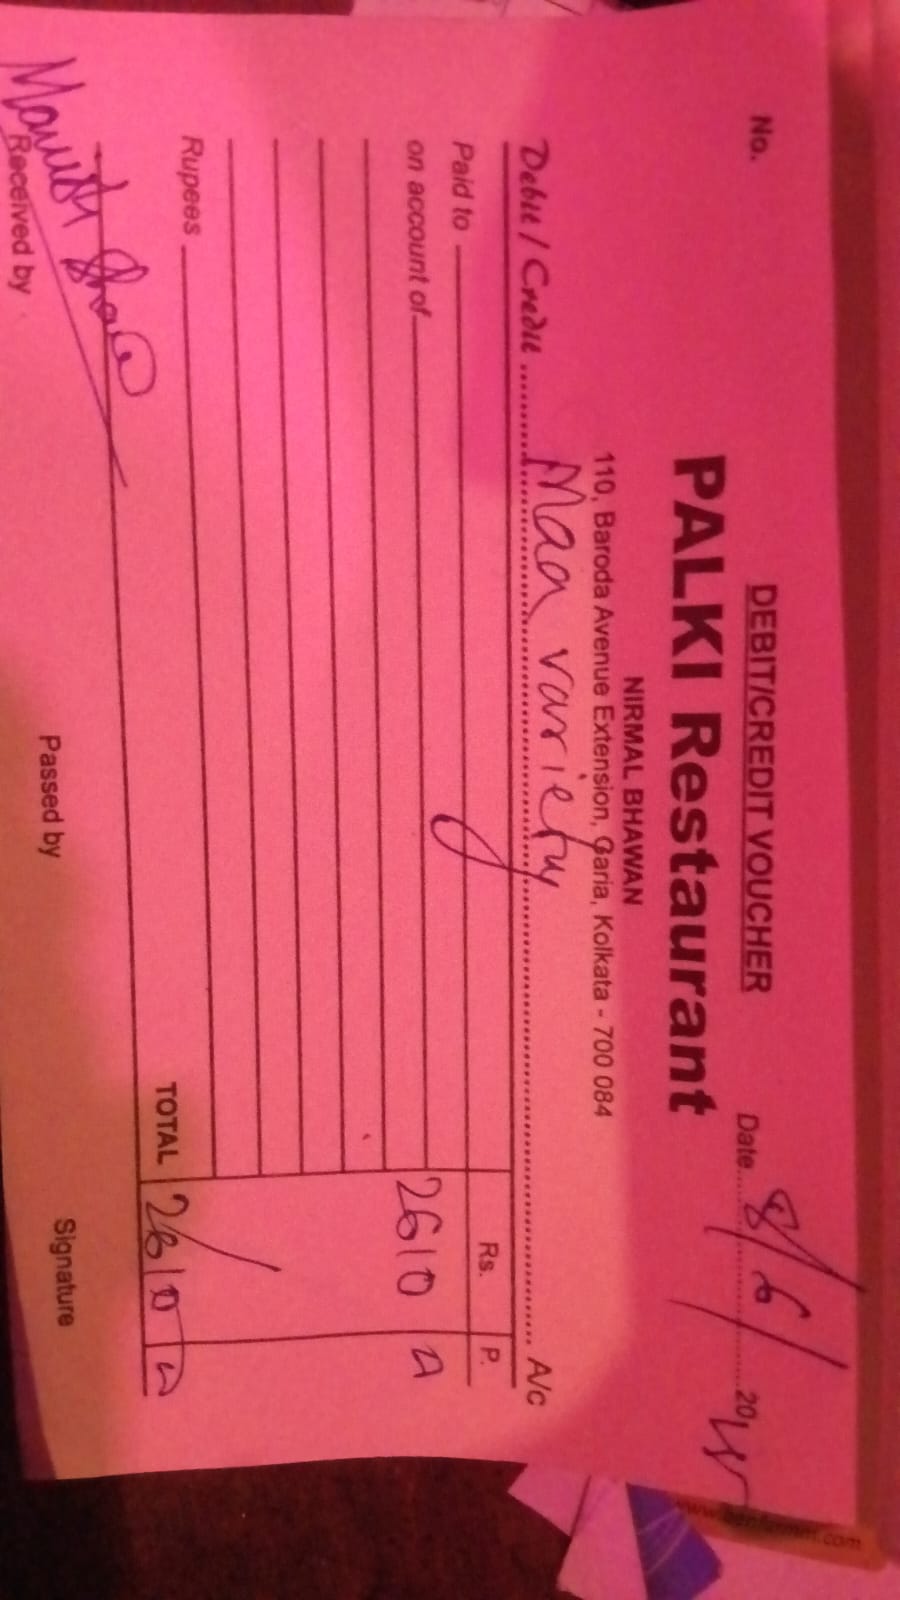 DEBIT/CREDIT VOUCHER
No. Date 8/6/20
PALKI Restaurant
NIRMAL BHAWAN
110, Baroda Avenue Extension, Garia, Kolkata - 700 084
Debit / Credit Maa variety A/c
Paid to Rs. P.
on account of 2610
Rupees TOTAL 2610
Received by Passed by Signature